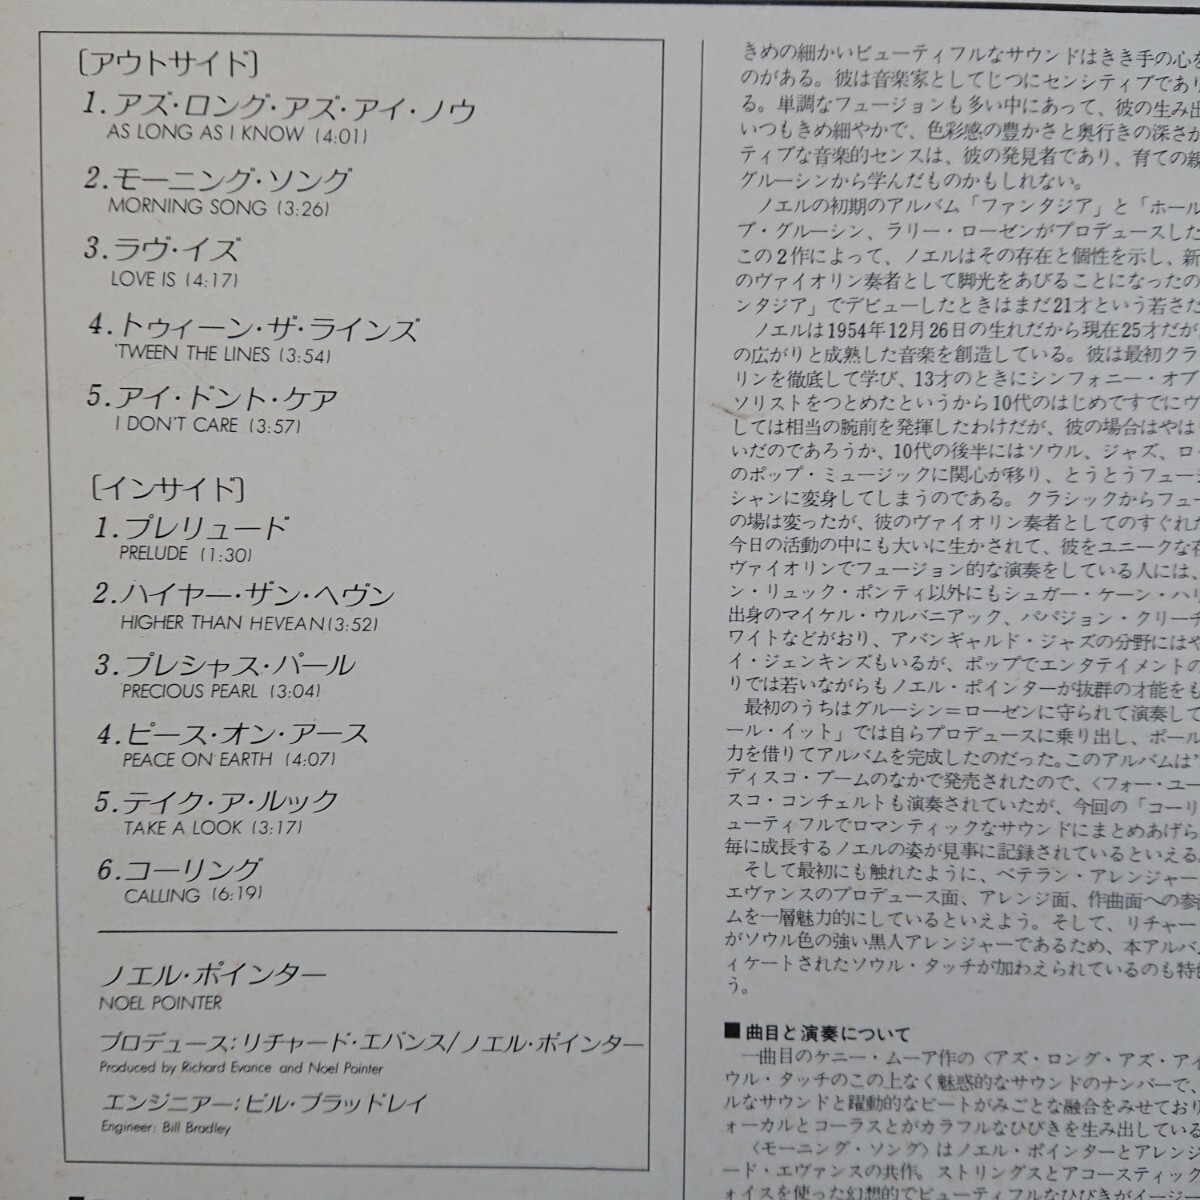 〔アウトサイド〕
1.アズ・ロング・アズ・アイ・ノウ
AS LONG AS I KNOW (4:01)
2.モーニング・ソング
MORNING SONG (3:26)
3.ラヴ・イズ
LOVE IS (4:17)
4.トゥィーン・ザ・ラインズ
'TWEEN THE LINES (3:54)
5.アイ・ドント・ケア
I DON'T CARE (3:57)
〔インサイド〕
1.プレリュード
PRELUDE (1:30)
2.ハイヤー・ザン・ヘヴン
HIGHER THAN HEVEAN (3:52)
3.プレシャス・パール
PRECIOUS PEARL (3:04)
4.ピース・オン・アース
PEACE ON EARTH (4:07)
5.テイク・ア・ルック
TAKE A LOOK (3:17)
6.コーリング
CALLING (6:19)
ノエル・ポインター
NOEL POINTER
プロデュース:リチャード・エバンス/ノエル・ポインター
Produced by Richard Evance and Noel Pointer
エンジニアー:ビル・ブラッドレイ
Engineer: Bill Bradley
きめの細かいビューティフルなサウンドはきき手の心を
のがある。彼は音楽家としてじつにセンシティブであり
る。単調なフュージョンも多い中にあって、彼の生み出
いつもきめ細やかで、色彩感の豊かさと奥行きの深さが
ティブな音楽的センスは、彼の発見者であり、育ての親
グルーシンから学んだものかもしれない。
ノエルの初期のアルバム「ファンタジア」と「ホール
ブ・グルーシン、ラリー・ローゼンがプロデュースした
この2作によって、ノエルはその存在と個性を示し、新
のヴァイオリン奏者として脚光をあびることになったの
ンタジア」でデビューしたときはまだ21才という若さだ
ノエルは1954年12月26日の生れだから現在25才だが
の広がりと成熟した音楽を創造している。彼は最初クラ
リンを徹底して学び、13才のときにシンフォニー・オブ
ソリストをつとめたというから10代のはじめですでにヴ
しては相当の腕前を発揮したわけだが、彼の場合はやは
いだのであろうか、10代の後半にはソウル、ジャズ、ロ
のポップ・ミュージックに関心が移り、とうとうフュー
シャンに変身してしまうのである。クラシックからフュー
の場は変ったが、彼のヴァイオリン奏者としてのすぐれた
今日の活動の中にも大いに生かされて、彼をユニークな存
ヴァイオリンでフュージョン的な演奏をしている人には、
ン・リュック・ポンティ以外にもシュガー・ケーン・ハリ
出身のマイケル・ウルバニアック、パパジョン・クリーチ
ワイトなどがおり、アバンギャルド・ジャズの分野にはや
イ・ジェンキンズもいるが、ポップでエンタテイメントの
りでは若いながらもノエル・ポインターが抜群の才能をも
最初のうちはグルーシン=ローゼンに守られて演奏して
ール・イット」では自らプロデュースに乗り出し、ポール
力を借りてアルバムを完成したのだった。このアルバムは
ディスコ・ブームのなかで発売されたので、〈フォー・ユー
スコ・コンチェルトも演奏されていたが、今回の「コーリ
ューティフルでロマンティックなサウンドにまとめあげら
毎に成長するノエルの姿が見事に記録されているといえる。
そして最初にも触れたように、ベテラン・アレンジャー
エヴァンスのプロデュース面、アレンジ面、作曲面への参
ムを一層魅力的にしているといえよう。そして、リチャー
がソウル色の強い黒人アレンジャーであるため、本アルバ
ィケートされたソウル・タッチが加わえられているのも特
う。
■曲目と演奏について
一曲目のケニー・ムーア作の〈アズ・ロング・アズ・アイ
ウル・タッチのこの上なく魅惑的なサウンドのナンバーで、
ルなサウンドと躍動的なビートがみごとな融合をみせており
ォーカルとコーラスとがカラフルなひびきを生み出している
〈モーニング・ソング〉はノエル・ポインターとアレンジ
ード・エヴァンスの共作。ストリングスとアコースティック
ォイスを使った幻想的でビューティフルなひびきがイージー